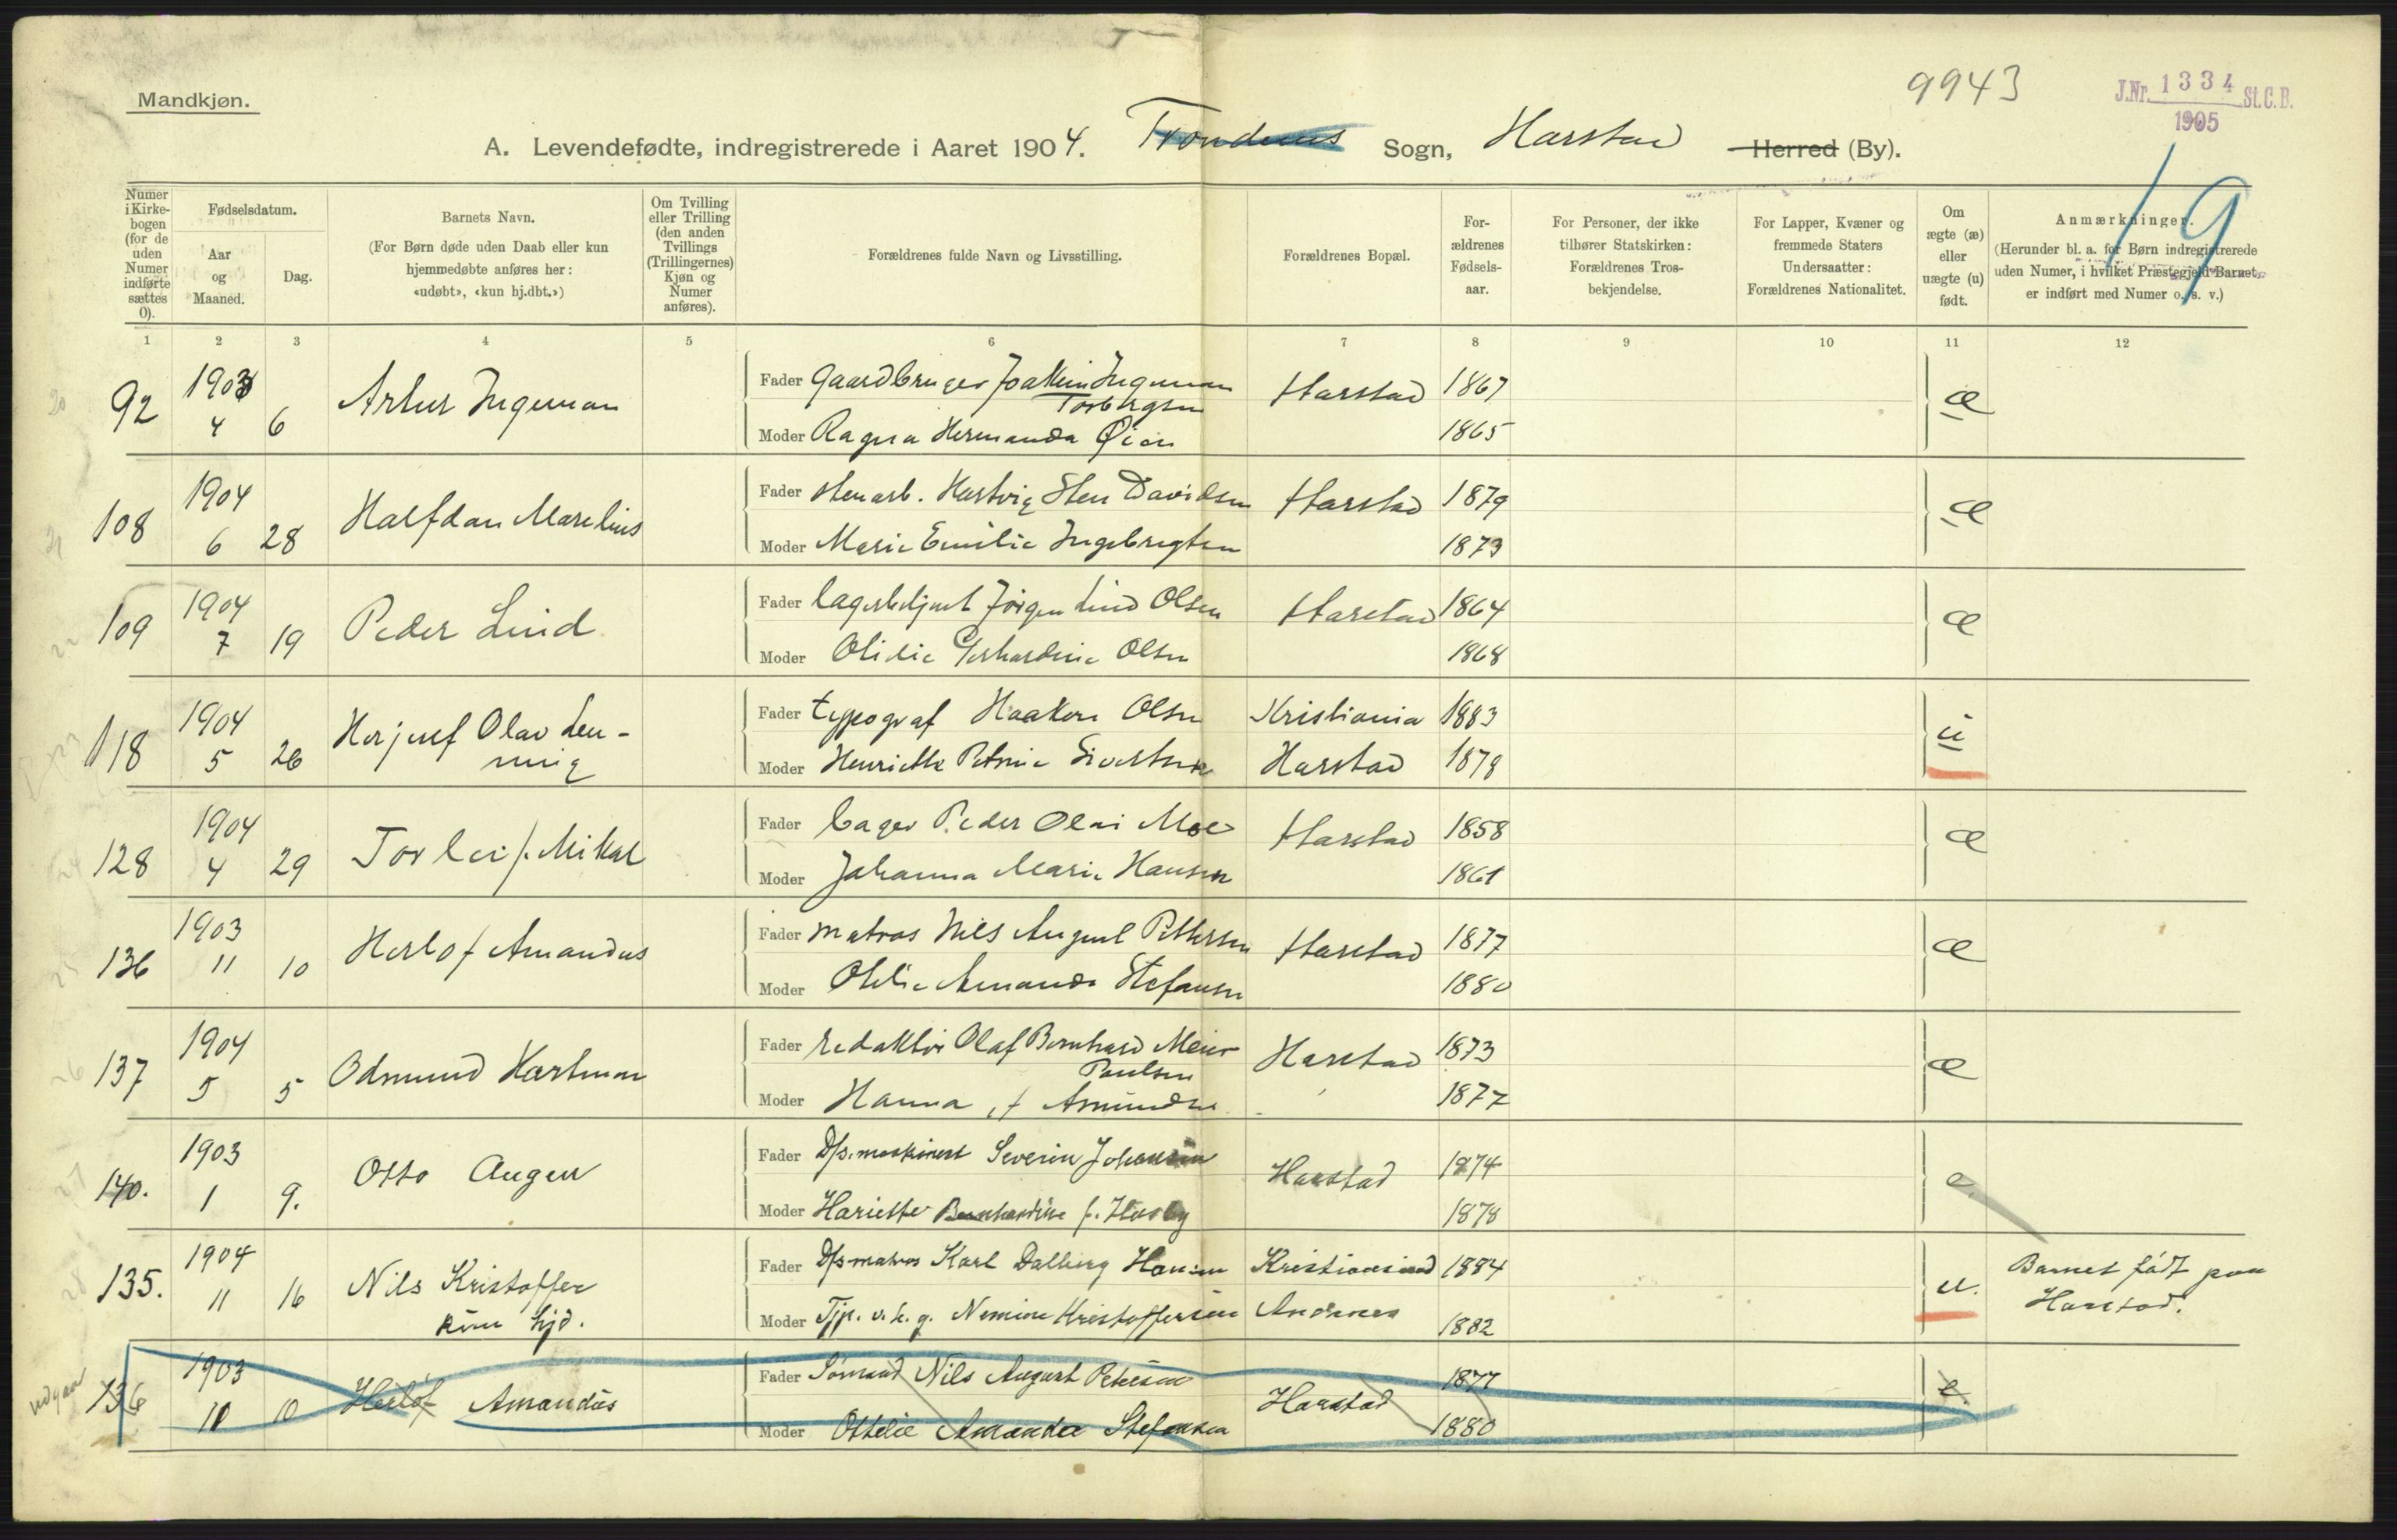 Mandkjøn.
9943
J.Nr. 1334 St.C.B.
1905
A. Levendefødte, indregistrerede i Aaret 1904. Trondenes Sogn, Harstad Herred (By).
19
Numer i Kirkebogen (for de uden Numer indførte sættes 0).
Fødselsdatum.
Aar og Maaned.
Dag.
Barnets Navn.
(For Børn døde uden Daab eller kun hjemmedøbte anføres her: «udøbt», «kun hj.dbt.»)
Om Tvilling eller Trilling (den anden Tvillings (Trillingernes) Kjøn og Numer anføres).
Forældrenes fulde Navn og Livsstilling.
Forældrenes Bopæl.
For-ældrenes Fødsels-aar.
For Personer, der ikke tilhører Statskirken: Forældrenes Tros-bekjendelse.
For Lapper, Kvæner og fremmede Staters Undersaatter: Forældrenes Nationalitet.
Om ægte (æ) eller uægte (u) født.
Anmærkninger.
(Herunder bl. a. for Børn indregistrerede uden Numer, i hvilket Præstegjeld Barnet er indført med Numer o. s. v.)
1 2 3 4 5 6 7 8 9 10 11 12
92 1903 4 6 Artur Ingeman
Fader Gaardbruger Joakim Ingeman Torbergsen Harstad 1867 æ
Moder Ragna Hermanda Øien 1865
108 1904 6 28 Halfdan Marelius
Fader stenarb. Hartvig Sten Davidsen Harstad 1879 æ
Moder Marie Emilie Ingebrigtsen 1873
109 1904 7 19 Peder Lind
Fader lagerbetjent Jørgen Lind Olsen Harstad 1864 æ
Moder Olivie Gerhardine Olsen 1868
118 1904 5 26 Herjulf Olav Henning
Fader typograf Haakon Olsen Kristiania 1883 u
Moder Henriette Petrine Sivertsen Harstad 1878
128 1904 4 29 Torleif Mikal
Fader bager Peder Olai Moe Harstad 1858 æ
Moder Johanna Marie Hansen 1861
136 1903 11 10 Herlof Amandus
Fader matros Nils August Pettersen Harstad 1877 æ
Moder Otilie Amanda Stefansen 1880
137 1904 5 5 Odmund Hartman
Fader redaktør Olaf Bernhard Meier Paulsen Harstad 1873 æ
Moder Hanna f. Amundsen 1877
140. 1903 1 9. Otto Augen
Fader D/s. maskinist Severin Johansen Harstad 1874 e.
Moder Hariette Bernhardine f. Husby 1878
135. 1904 11 16 Nils Kristoffer
kun hjd.
Fader D/s matros Karl Dalberg Hansen Kristiansund 1884 u. Barnet født paa
Moder Tjp. v. k. g. Nemine Kristoffersen Andenes 1882 Harstad.
udgaar 136 1903 11 10 Herlof Amandus
Fader Sømand Nils August Petersen Harstad 1877 e
Moder Ottelie Amanda Stefansen 1880